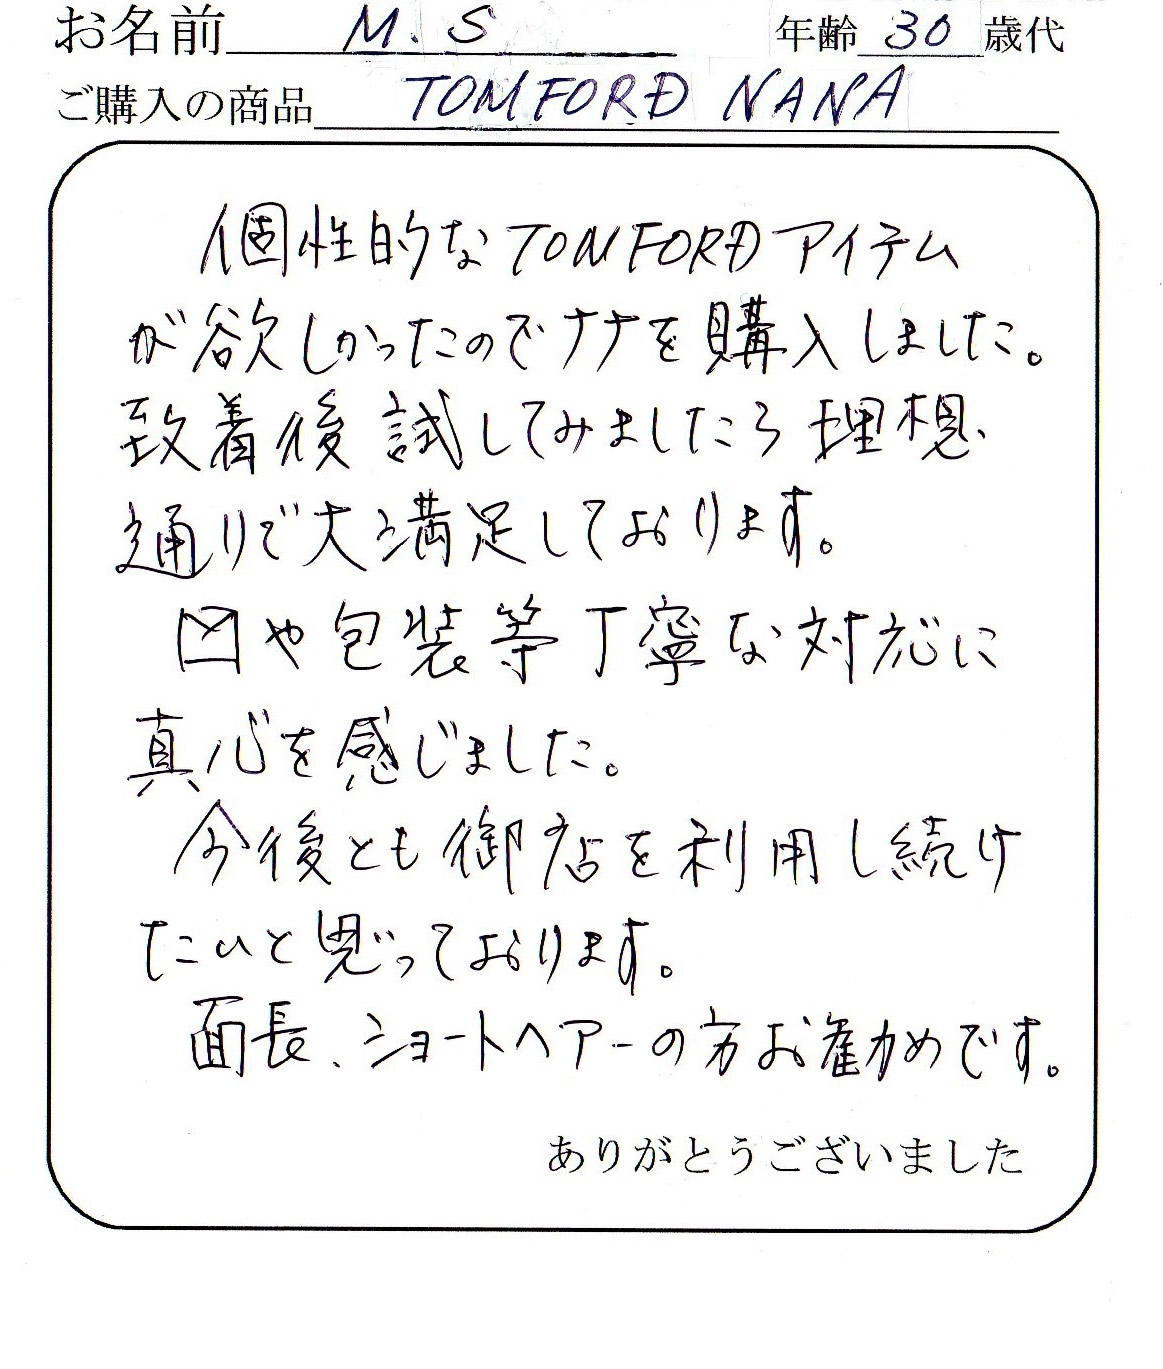 お名前 M.S 年齢 30 歳代
ご購入の商品 TOMFORD NANA
個性的なTOMFORDアイテム
が欲しかったのでナナを購入しました。
致着後試してみましたら理想
通りで大満足しております。
✉や包装等丁寧な対応に
真心を感じました。
今後とも御店を利用し続け
たいと思っております。
面長、ショートヘアーの方お勧めです。
ありがとうございました